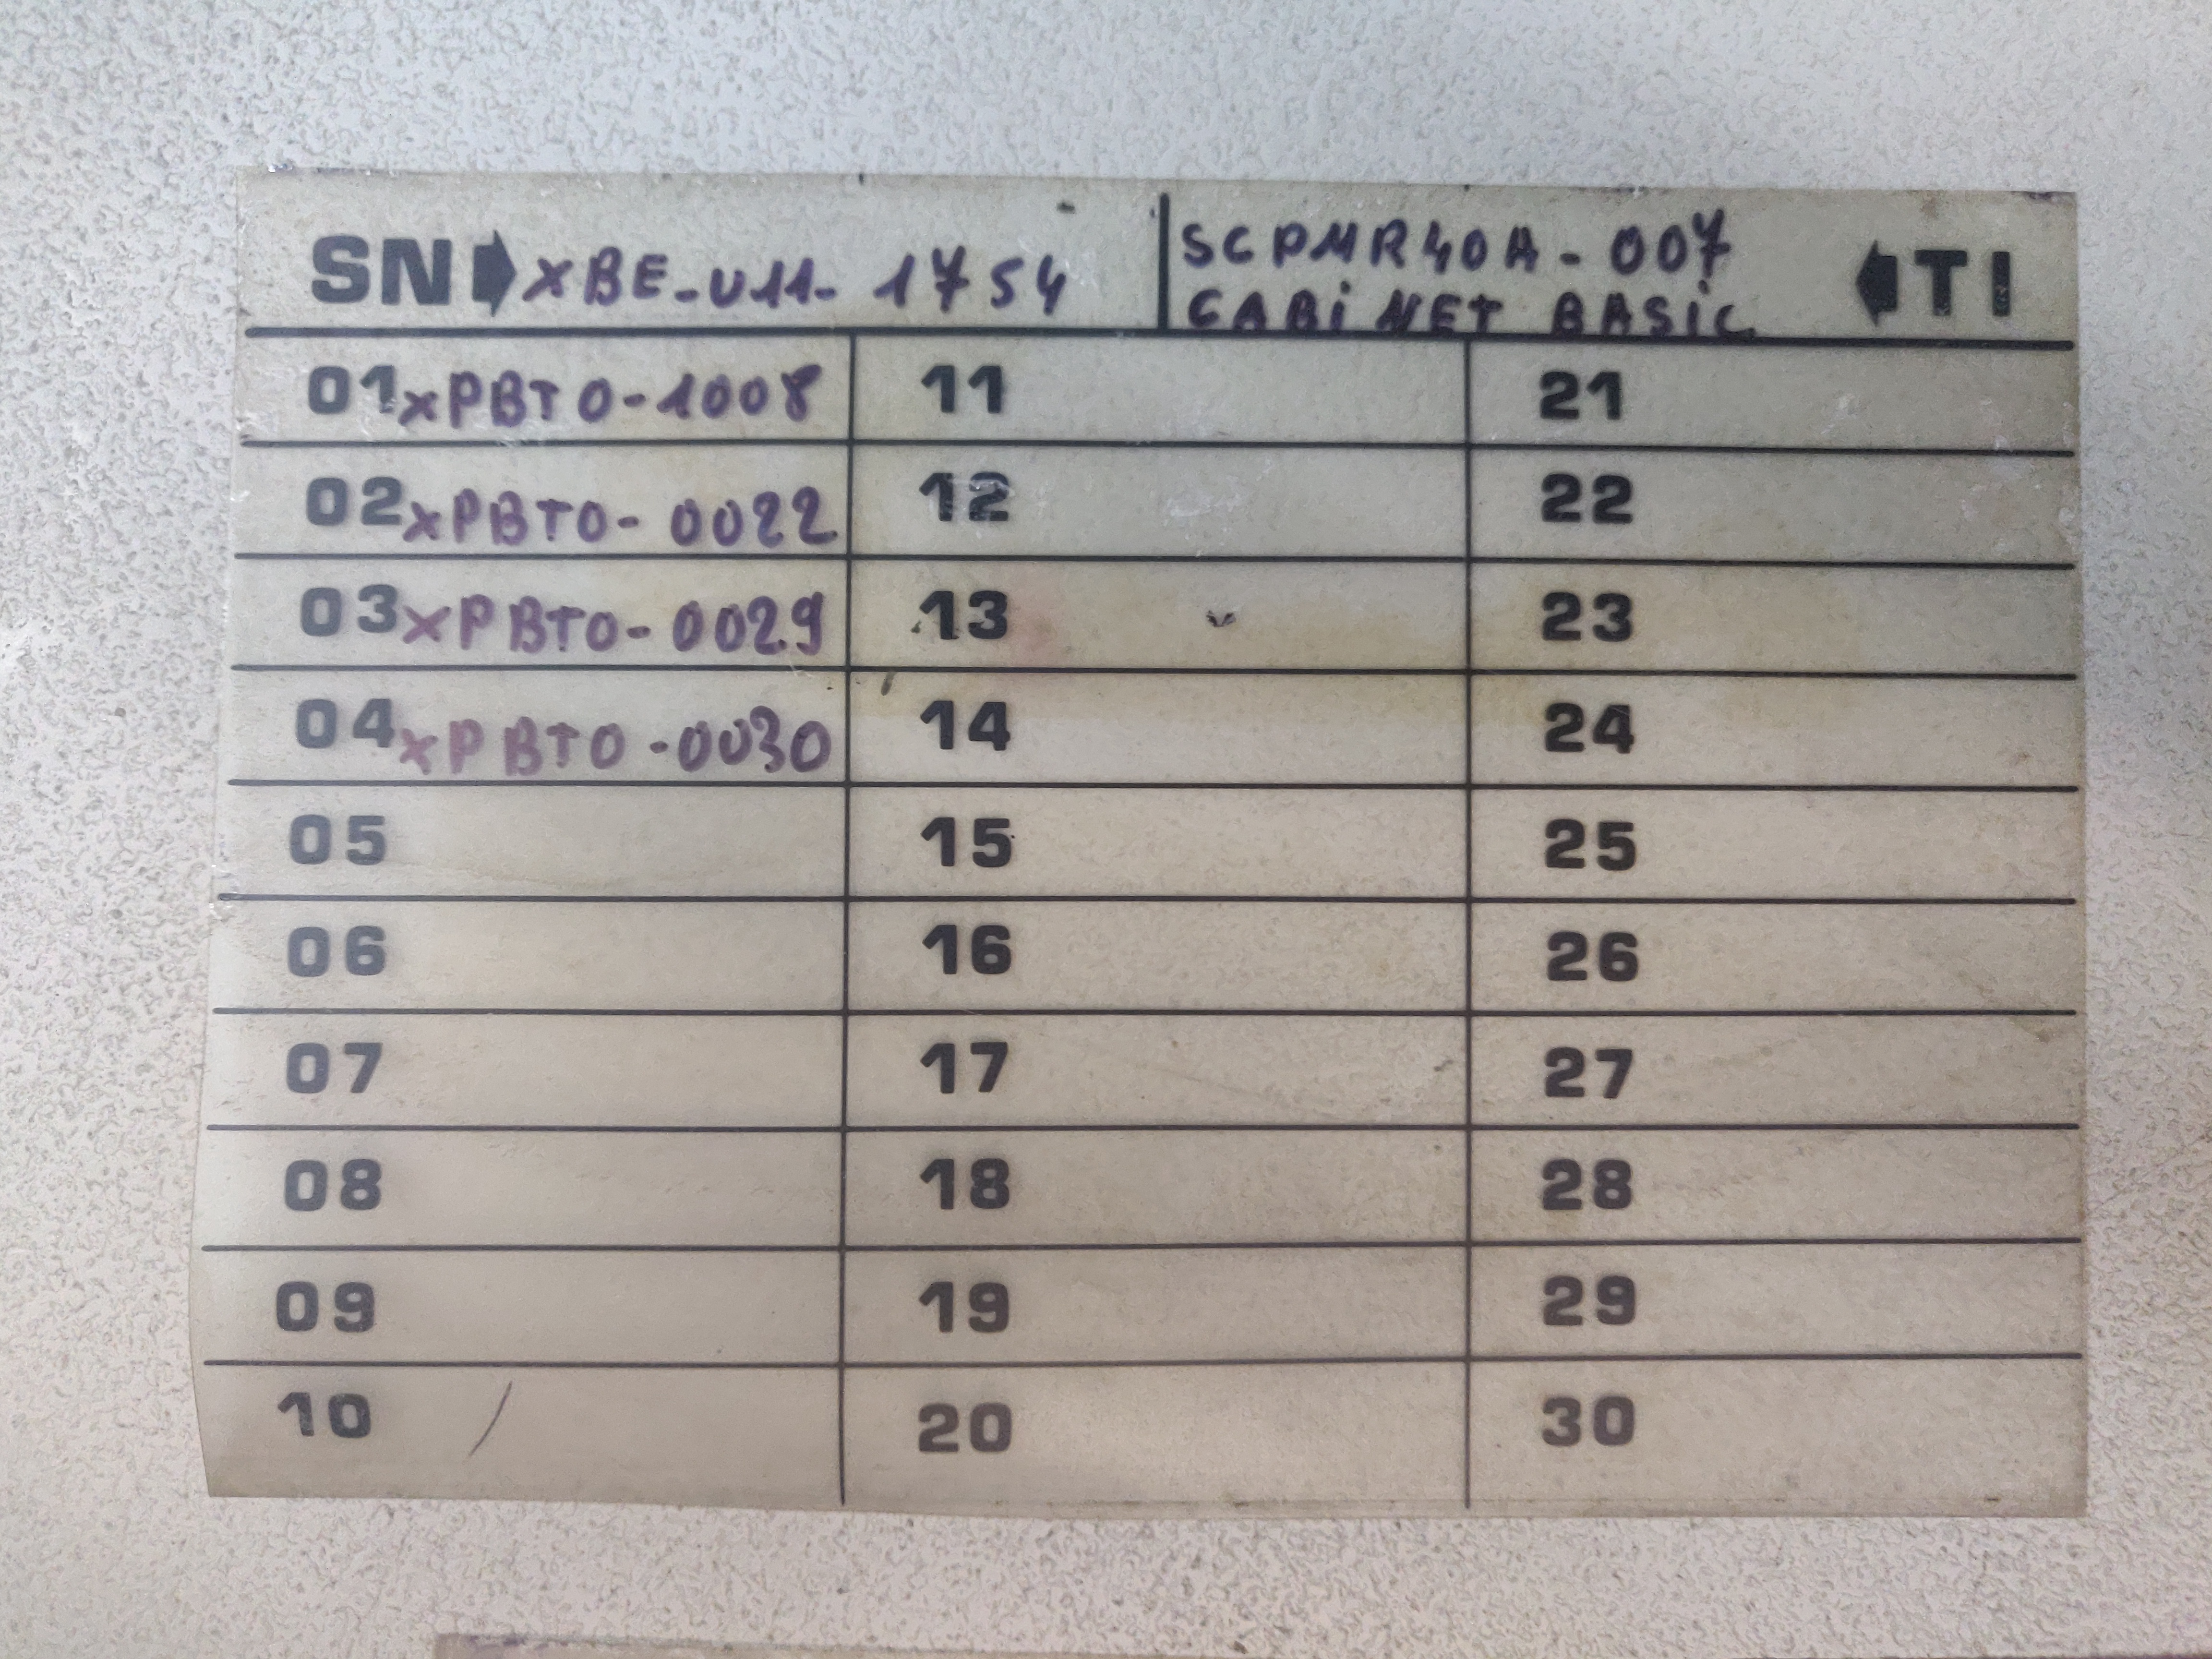 SN XBE-U11-1754 SCPMR40A-007 TI
CABiNET BASiC
01 xPBTO-1008 11 21
02 xPBTO-0022 12 22
03 xPBTO-0029 13 23
04 xPBTO-0030 14 24
05 15 25
06 16 26
07 17 27
08 18 28
09 19 29
10 / 20 30